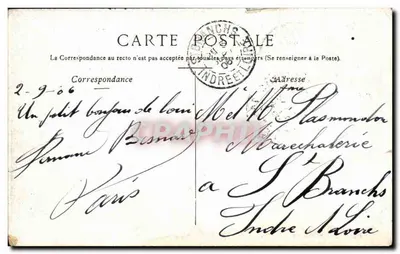 CARTE POSTALE
La Correspondance au recto n'est pas acceptée par tous les pays étrangers (Se renseigner à la Poste).
Correspondance
Adresse
2-9-06
Un petit bonjour de loin
Besnard
Paris
M et Mme Plasmondon
Marechalerie
a St Branchs
Indre & Loire
ST BRANCHS
INDRE ET LOIRE